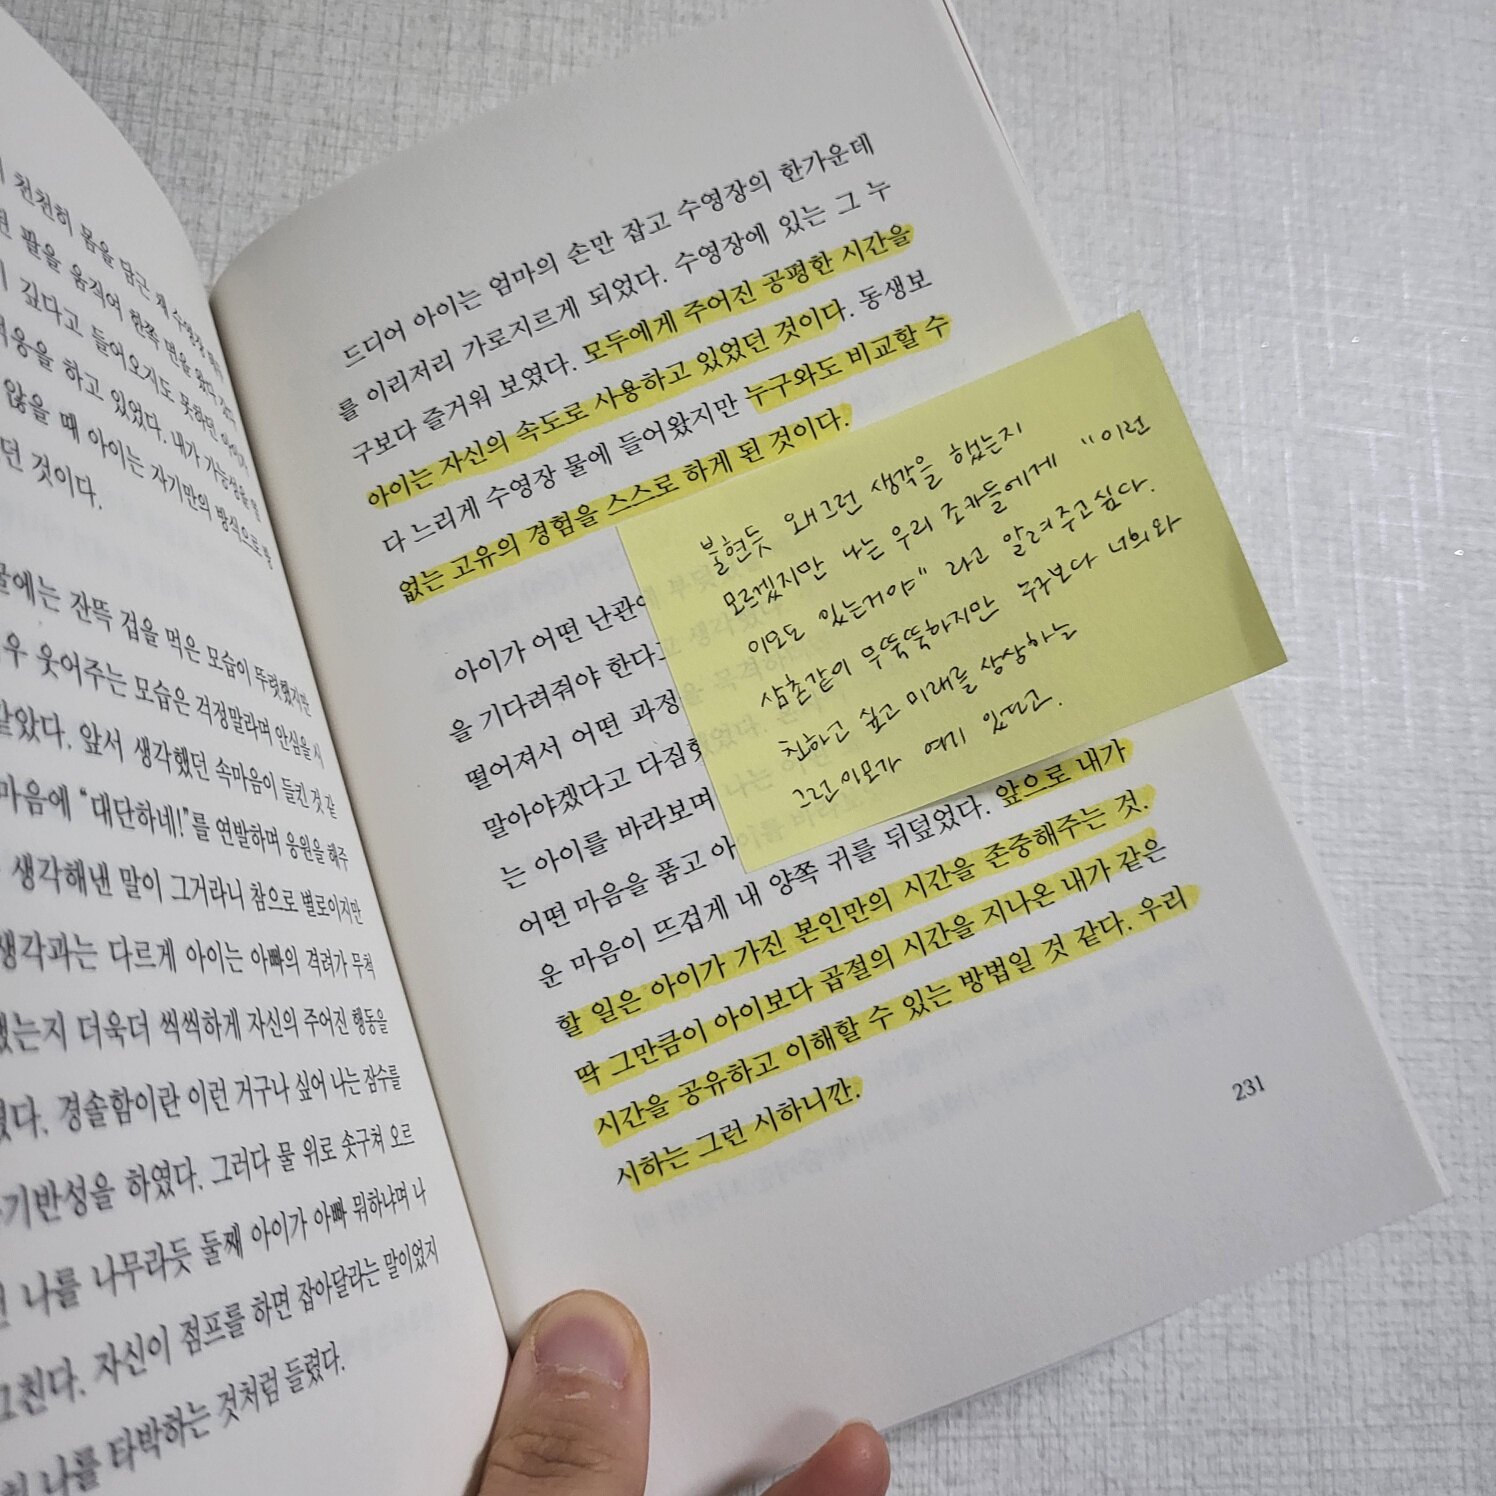 천천히 몸을 담근 채 수영장
팔을 움직여 한쪽 면을 왔다
깊다고 들어오지도 못하던 아이가
적응을 하고 있었다. 내가 가능성을
않을 때 아이는 자기만의 방식으로
던 것이다.
물에는 잔뜩 겁을 먹은 모습이 뚜렷했지만
우 웃어주는 모습은 걱정말라며 안심을 시
같았다. 앞서 생각했던 속마음이 들킨 것 같
마음에 “대단하네!”를 연발하며 응원을 해주
생각해낸 말이 그거라니 참으로 별로이지만
생각과는 다르게 아이는 아빠의 격려가 무척
했는지 더욱더 씩씩하게 자신의 주어진 행동을
였다. 경솔함이란 이런 거구나 싶어 나는 잠수를
기반성을 하였다. 그러다 물 위로 솟구쳐 오르
나를 나무라듯 둘째 아이가 아빠 뭐하냐며 나
그친다. 자신이 점프를 하면 잡아달라는 말이었지
나를 타박하는 것처럼 들렸다.
드디어 아이는 엄마의 손만 잡고 수영장의 한가운데
를 이리저리 가로지르게 되었다. 수영장에 있는 그 누
구보다 즐거워 보였다. 모두에게 주어진 공평한 시간을
아이는 자신의 속도로 사용하고 있었던 것이다. 동생보
다 느리게 수영장 물에 들어왔지만 누구와도 비교할 수
없는 고유의 경험을 스스로 하게 된 것이다.
아이가 어떤 난관에
을 기다려줘야 한다고
떨어져서 어떤 과정을
말아야겠다고 다짐했
는 아이를 바라보며
어떤 마음을 품고 아
운 마음이 뜨겁게 내 양쪽 귀를 뒤덮었다. 앞으로 내가
할 일은 아이가 가진 본인만의 시간을 존중해주는 것.
딱 그만큼이 아이보다 곱절의 시간을 지나온 내가 같은
시간을 공유하고 이해할 수 있는 방법일 것 같다. 우리
시하는 그런 시하니깐.
231
불현듯 왜 그런 생각을 했는지
모르겠지만 나는 우리 조카들에게 "이런
이모도 있는거야" 라고 알려주고싶다.
삼촌같이 무뚝뚝하지만 누구보다 너희와
친하고 싶고 미래를 상상하는
그런 이모가 여기 있다고.